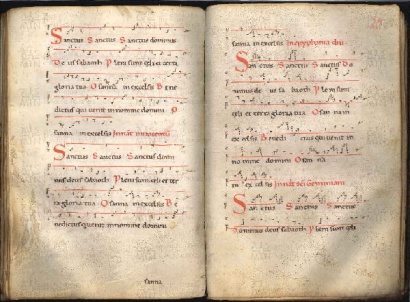 Sanctus Sanctus Sanctus dominus
Deus sabaoth Pleni sunt celi et terra
gloria tua Osanna in excelsis Bene
dictus qui uenit in nomine domini O
sanna in excelsis
Sanctus Sanctus Sanctus domi
nus deus sabaoth Pleni sunt celi et ter
ra gloria tua Osanna in excelsis B
nedictus qui uenit in nomine domini
sanna
sanna in excelsis
Sanctus Sanctus Sanctus Do
minus deus sabaoth Pleni sunt
celi et terra gloria tua Osanna in
excelsis Benedictus qui uenit in
nomine domini Osanna
in excelsis
Sanctus Sanctus Sanctus
Dominus deus sabaoth Pleni sunt celi